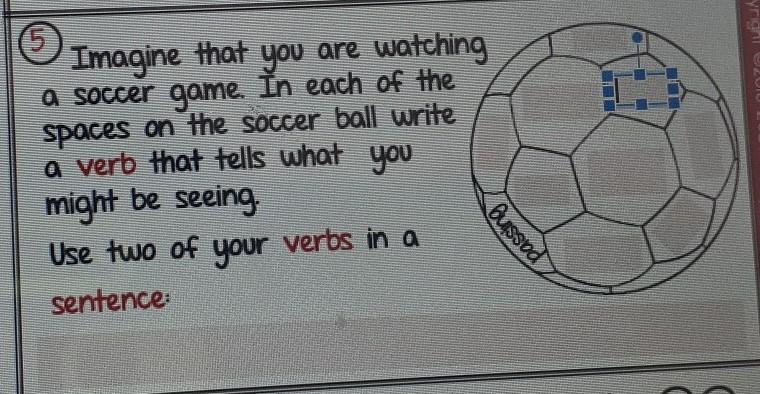 5
Imagine that you are watching
a soccer game. In each of the
spaces on the soccer ball write
a verb that tells what you
might be seeing.
Use two of your verbs in a
sentence:
passing